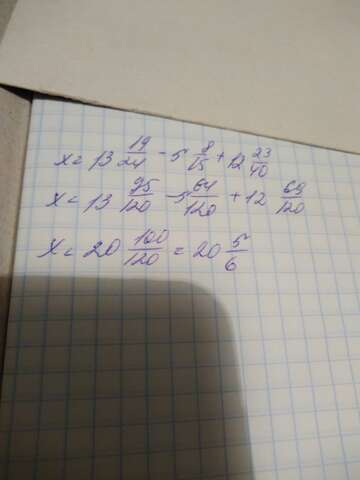 x = 13 19/24 - 5 8/15 + 12 23/40
x = 13 95/120 - 5 64/120 + 12 69/120
x = 20 100/120 = 20 5/6